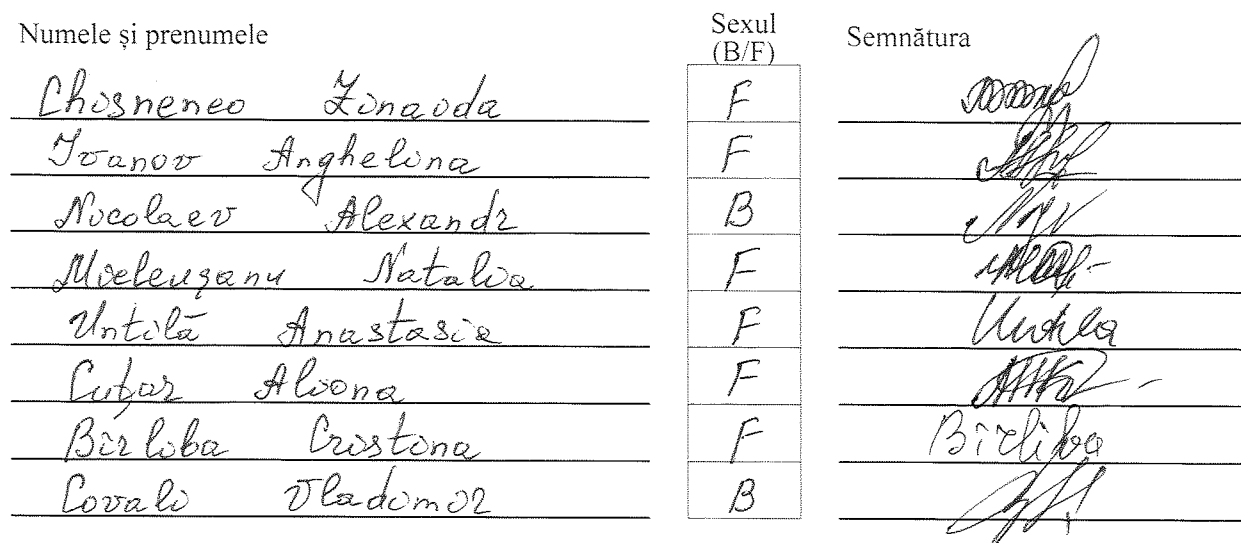 Numele și prenumele Sexul (B/F) Semnătura
Chisnenco Zinaida F
Ivanov Anghelina F
Nicolaev Alexandr B
Natalia F
Untilă Anastasia F Untila
Cuțar Aliona F
Bîrliba Cristina F Bîrliba
Covali Vladimir B